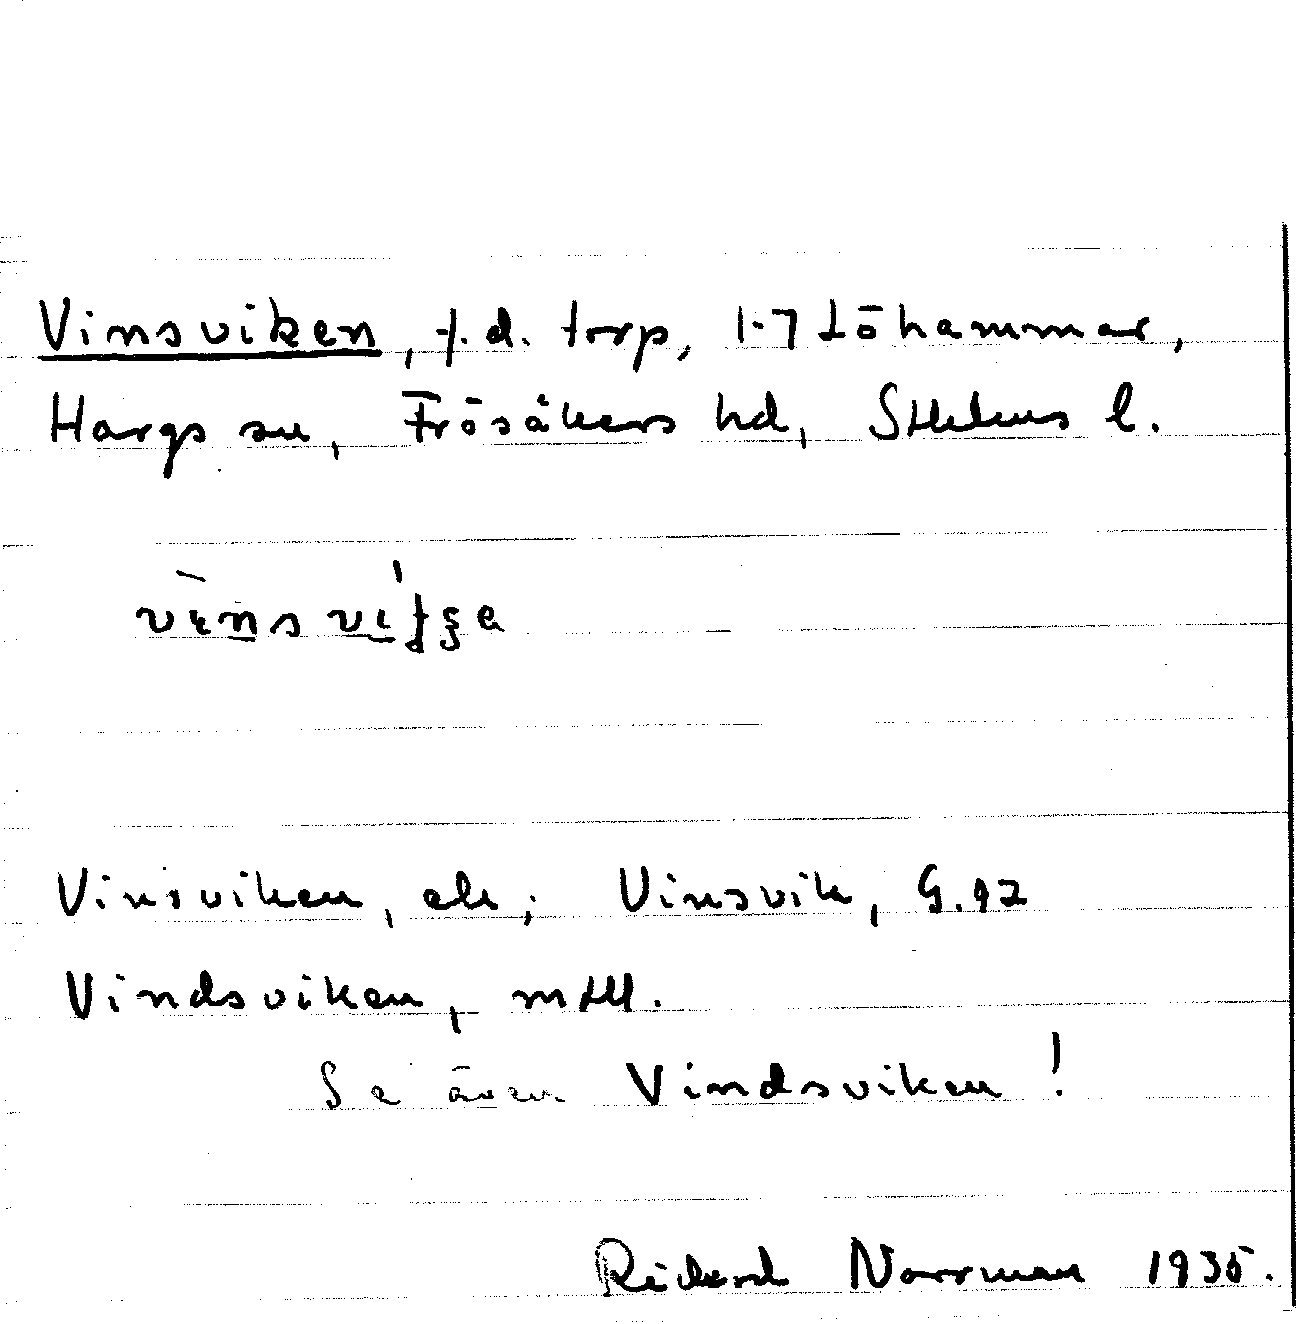 Vinsviken, f.d. torp, 1-7 Löhammar,
Hargs sn, Frösåkers hd, Sthlms l.
Vinsviken, ek; Vinsvik, G.92
Vindsviken, mtll.
Se även Vindsviken!
Rickard Norrman 1935.